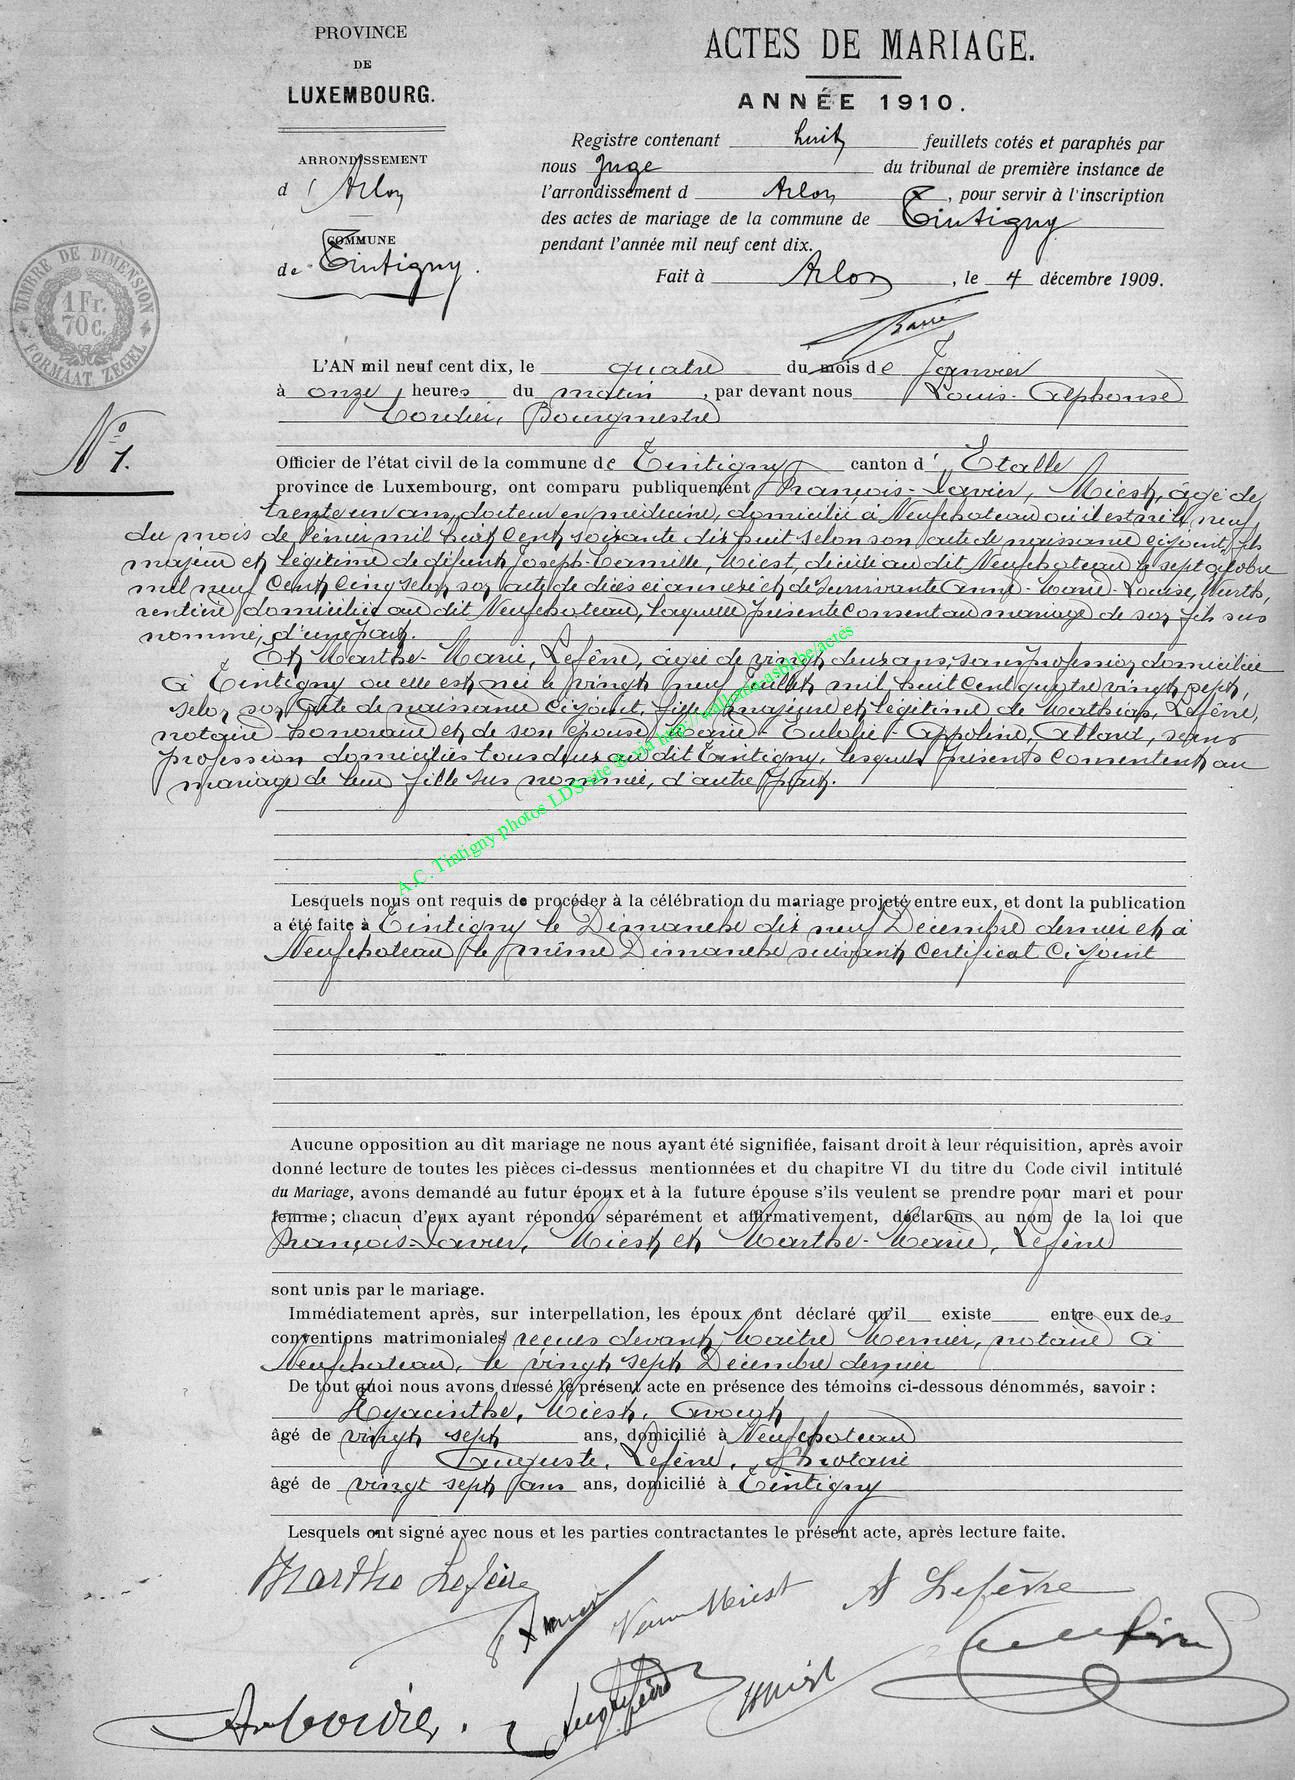 PROVINCE
DE
LUXEMBOURG.
ARRONDISSEMENT
d'Arlon
COMMUNE
de Tintigny.
ACTES DE MARIAGE.
ANNÉE 1910.
Registre contenant huit feuillets cotés et paraphés par
nous Juge du tribunal de première instance de
l'arrondissement d Arlon, pour servir à l'inscription
des actes de mariage de la commune de Tintigny
pendant l'année mil neuf cent dix.
Fait à Arlon, le 4 décembre 1909.
TIMBRE DE DIMENSION
1 Fr.
70 C.
FORMAAT ZEGEL
L'AN mil neuf cent dix, le quatre du mois de Janvier
à onze heures du matin, par devant nous Louis-Alphonse
Cordier, Bourgmestre
N° 1.
Officier de l'état civil de la commune de Tintigny canton d'Etalle
province de Luxembourg, ont comparu publiquement François-Xavier, Miest, âgé de
trente un ans, docteur en médecine, domicilié à Neufchateau où il est né le neuf
du mois de février mil huit cent soixante dix huit selon son acte de naissance ci joint, fils
majeur et légitime de défunt Joseph-Camille, Miest, décédé au dit Neufchateau le sept octobre
mil neuf cent cinq selon son acte de décès ci annexé et de survivante Anne-Marie-Louise, Wurth,
rentière domiciliée au dit Neufchateau, laquelle présente consent au mariage de son fils sus
nommé, d'une part.
Et Marthe-Marie, Lefèvre, âgée de vingt deux ans, sans profession domiciliée
à Tintigny où elle est née le vingt neuf Juillet mil huit cent quatre vingt sept,
selon son acte de naissance ci joint, fille majeure et légitime de Mathias, Lefèvre,
notaire honoraire et de son épouse Marie-Eulalie-Appoline, Allard, sans
profession domiciliés tous deux au dit Tintigny, lesquels présents consentent au
mariage de leur fille sus nommée, d'autre part.
A.C. Tintigny photos LDS site & via http://wallonia-asbl.be/actes
Lesquels nous ont requis de procéder à la célébration du mariage projeté entre eux, et dont la publication
a été faite à Tintigny le Dimanche dix neuf Décembre dernier et à
Neufchateau le même Dimanche suivant certificat ci joint
Aucune opposition au dit mariage ne nous ayant été signifiée, faisant droit à leur réquisition, après avoir
donné lecture de toutes les pièces ci-dessus mentionnées et du chapitre VI du titre du Code civil intitulé
du Mariage, avons demandé au futur époux et à la future épouse s'ils veulent se prendre pour mari et pour
femme; chacun d'eux ayant répondu séparément et affirmativement, déclarons au nom de la loi que
François-Xavier, Miest et Marthe-Marie, Lefèvre
sont unis par le mariage.
Immédiatement après, sur interpellation, les époux ont déclaré qu'il existe entre eux des
conventions matrimoniales reçues devant Maître Mernier, notaire à
Neufchateau, le vingt sept Décembre dernier
De tout quoi nous avons dressé le présent acte en présence des témoins ci-dessous dénommés, savoir :
Hyacinthe, Miest, Avocat
âgé de vingt sept ans, domicilié à Neufchateau
Auguste, Lefèvre, notaire
âgé de vingt sept ans ans, domicilié à Tintigny
Lesquels ont signé avec nous et les parties contractantes le présent acte, après lecture faite.
Marthe Lefèvre
Miest
Lefèvre